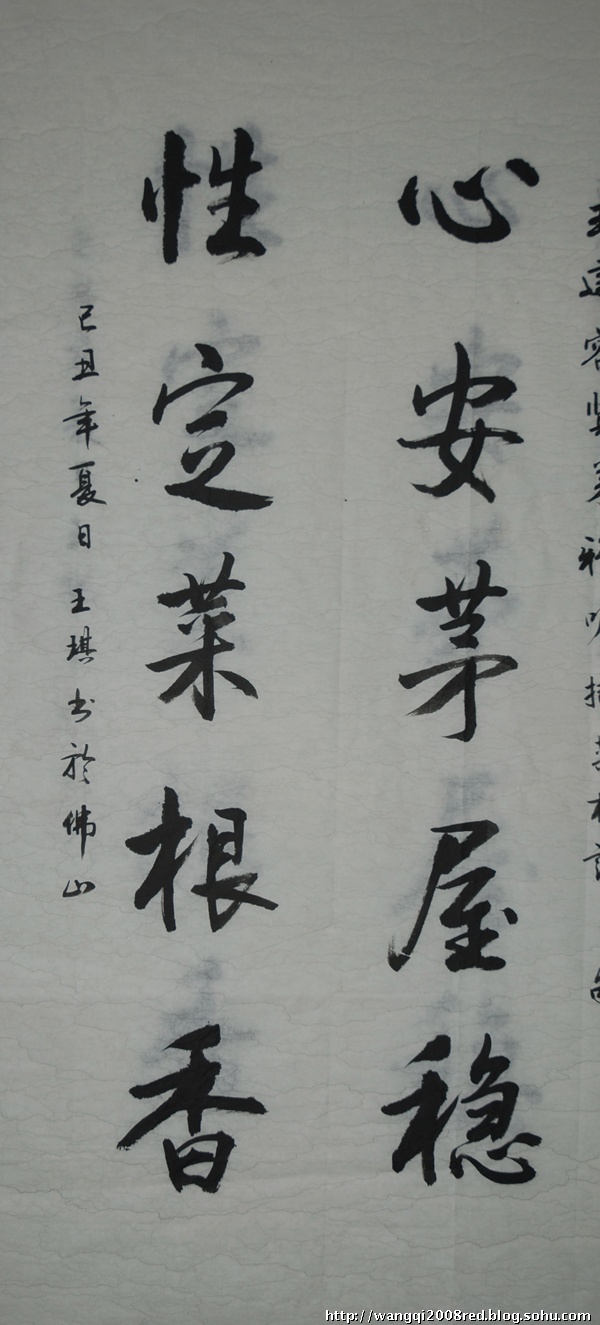 心安茅屋稳
性定菜根香
己丑年夏日 王琪书於佛山
http://wangqi2008red.blog.sohu.com